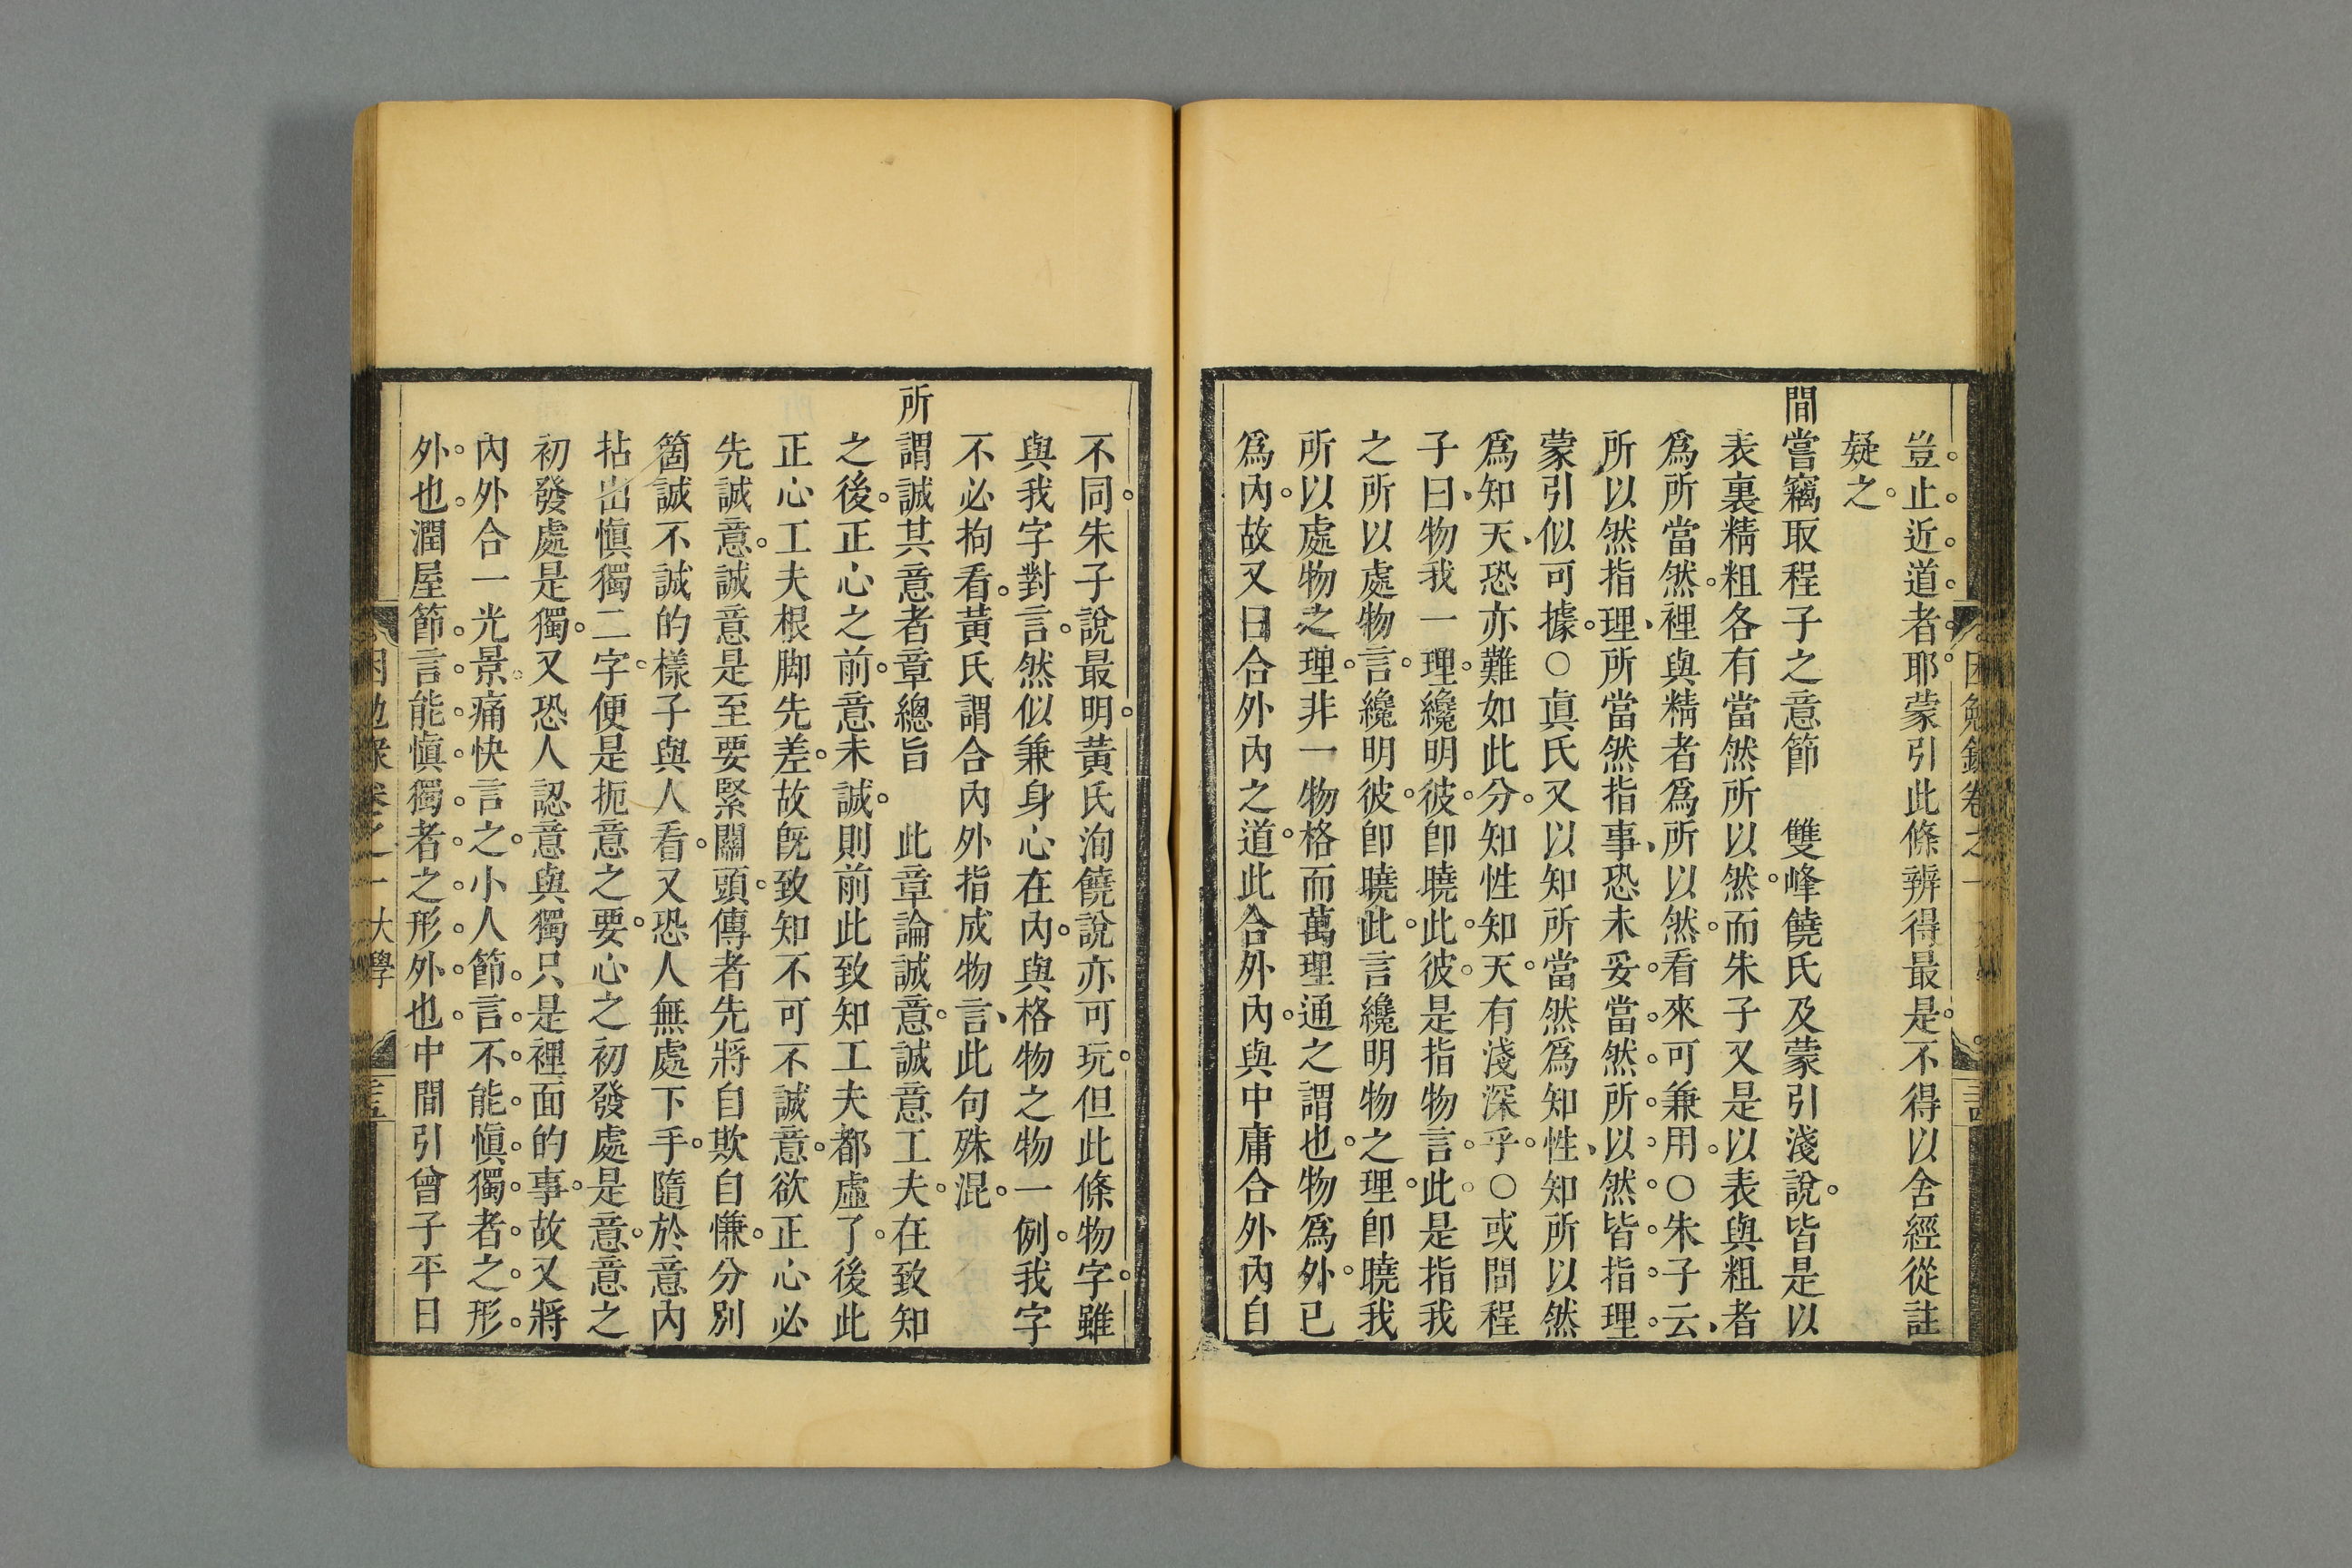 豈止近道者耶蒙引此條辨得最是不得以舍經從註
疑之
間嘗竊取程子之意節　雙峰饒氏及蒙引淺說皆是以
表裏精粗各有當然所以然而朱子又是以表與粗者
爲所當然裡與精者爲所以然看來可兼用○朱子云
所以然指理所當然指事恐未妥當然所以然皆指理
蒙引似可據○眞氏又以知所當然爲知性知所以然
爲知天恐亦難如此分知性知天有淺深乎○或問程
子曰物我一理纔明彼卽曉此彼是指物言此是指我
之所以處物言纔明彼卽曉此言纔明物之理卽曉我
所以處物之理非一物格而萬理通之謂也物爲外已
爲內故又曰合外內之道此合外內與中庸合外內自
不同朱子說最明黃氏洵饒說亦可玩但此條物字雖
與我字對言然似兼身心在內與格物之物一例我字
不必拘看黃氏謂合內外指成物言此句殊混
所謂誠其意者章總旨　此章論誠意誠意工夫在致知
之後正心之前意未誠則前此致知工夫都虛了後此
正心工夫根脚先差故旣致知不可不誠意欲正心必
先誠意誠意是至要緊關頭傳者先將自欺自慊分別
箇誠不誠的樣子與人看又恐人無處下手隨於意內
拈出愼獨二字便是扼意之要心之初發處是意意之
初發處是獨又恐人認意與獨只是裡面的事故又將
內外合一光景痛快言之小人節言不能愼獨者之形
外也潤屋節言能愼獨者之形外也中間引曾子平日
困勉錄卷之一　大學